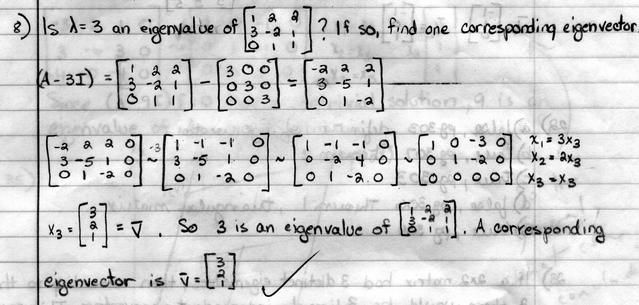 8) Is λ=3 an eigenvalue of [1 2 2; 3 -2 1; 0 1 1]? If so, find one corresponding eigenvector.
(A - 3I) = [1 2 2; 3 -2 1; 0 1 1] - [3 0 0; 0 3 0; 0 0 3] = [-2 2 2; 3 -5 1; 0 1 -2]
[-2 2 2 0; 3 -5 1 0; 0 1 -2 0] ~ -3 [1 -1 -1 0; 3 -5 1 0; 0 1 -2 0] ~ [1 -1 -1 0; 0 -2 4 0; 0 1 -2 0] ~ [1 0 -3 0; 0 1 -2 0; 0 0 0 0] x₁ = 3x₃ x₂ = 2x₃ x₃ = x₃
x₃ = [3; 2; 1] = v̄. So 3 is an eigenvalue of [1 2 2; 3 -2 1; 0 1 1]. A corresponding
eigenvector is v̄ = [3; 2; 1] ✓